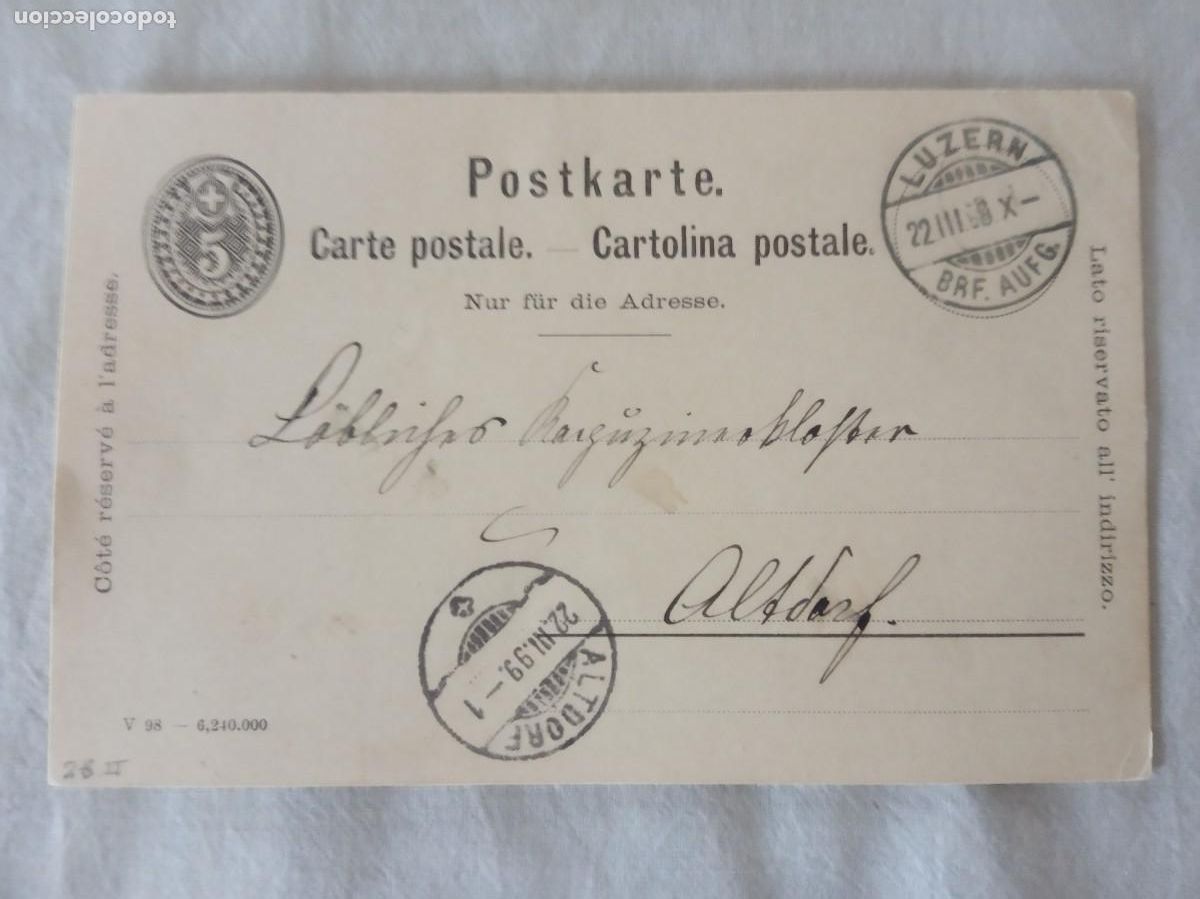 todocoleccion
Postkarte.
Carte postale. — Cartolina postale.
Nur für die Adresse.
5
LUZERN
22 III X—
BRF. AUFG.
Côté réservé à l'adresse.
Lato riservato all' indirizzo.
Löbliches Kapuzinerkloster
Altdorf.
22.III.99.—1
ALTDORF
V 98 — 6,240.000
28 II